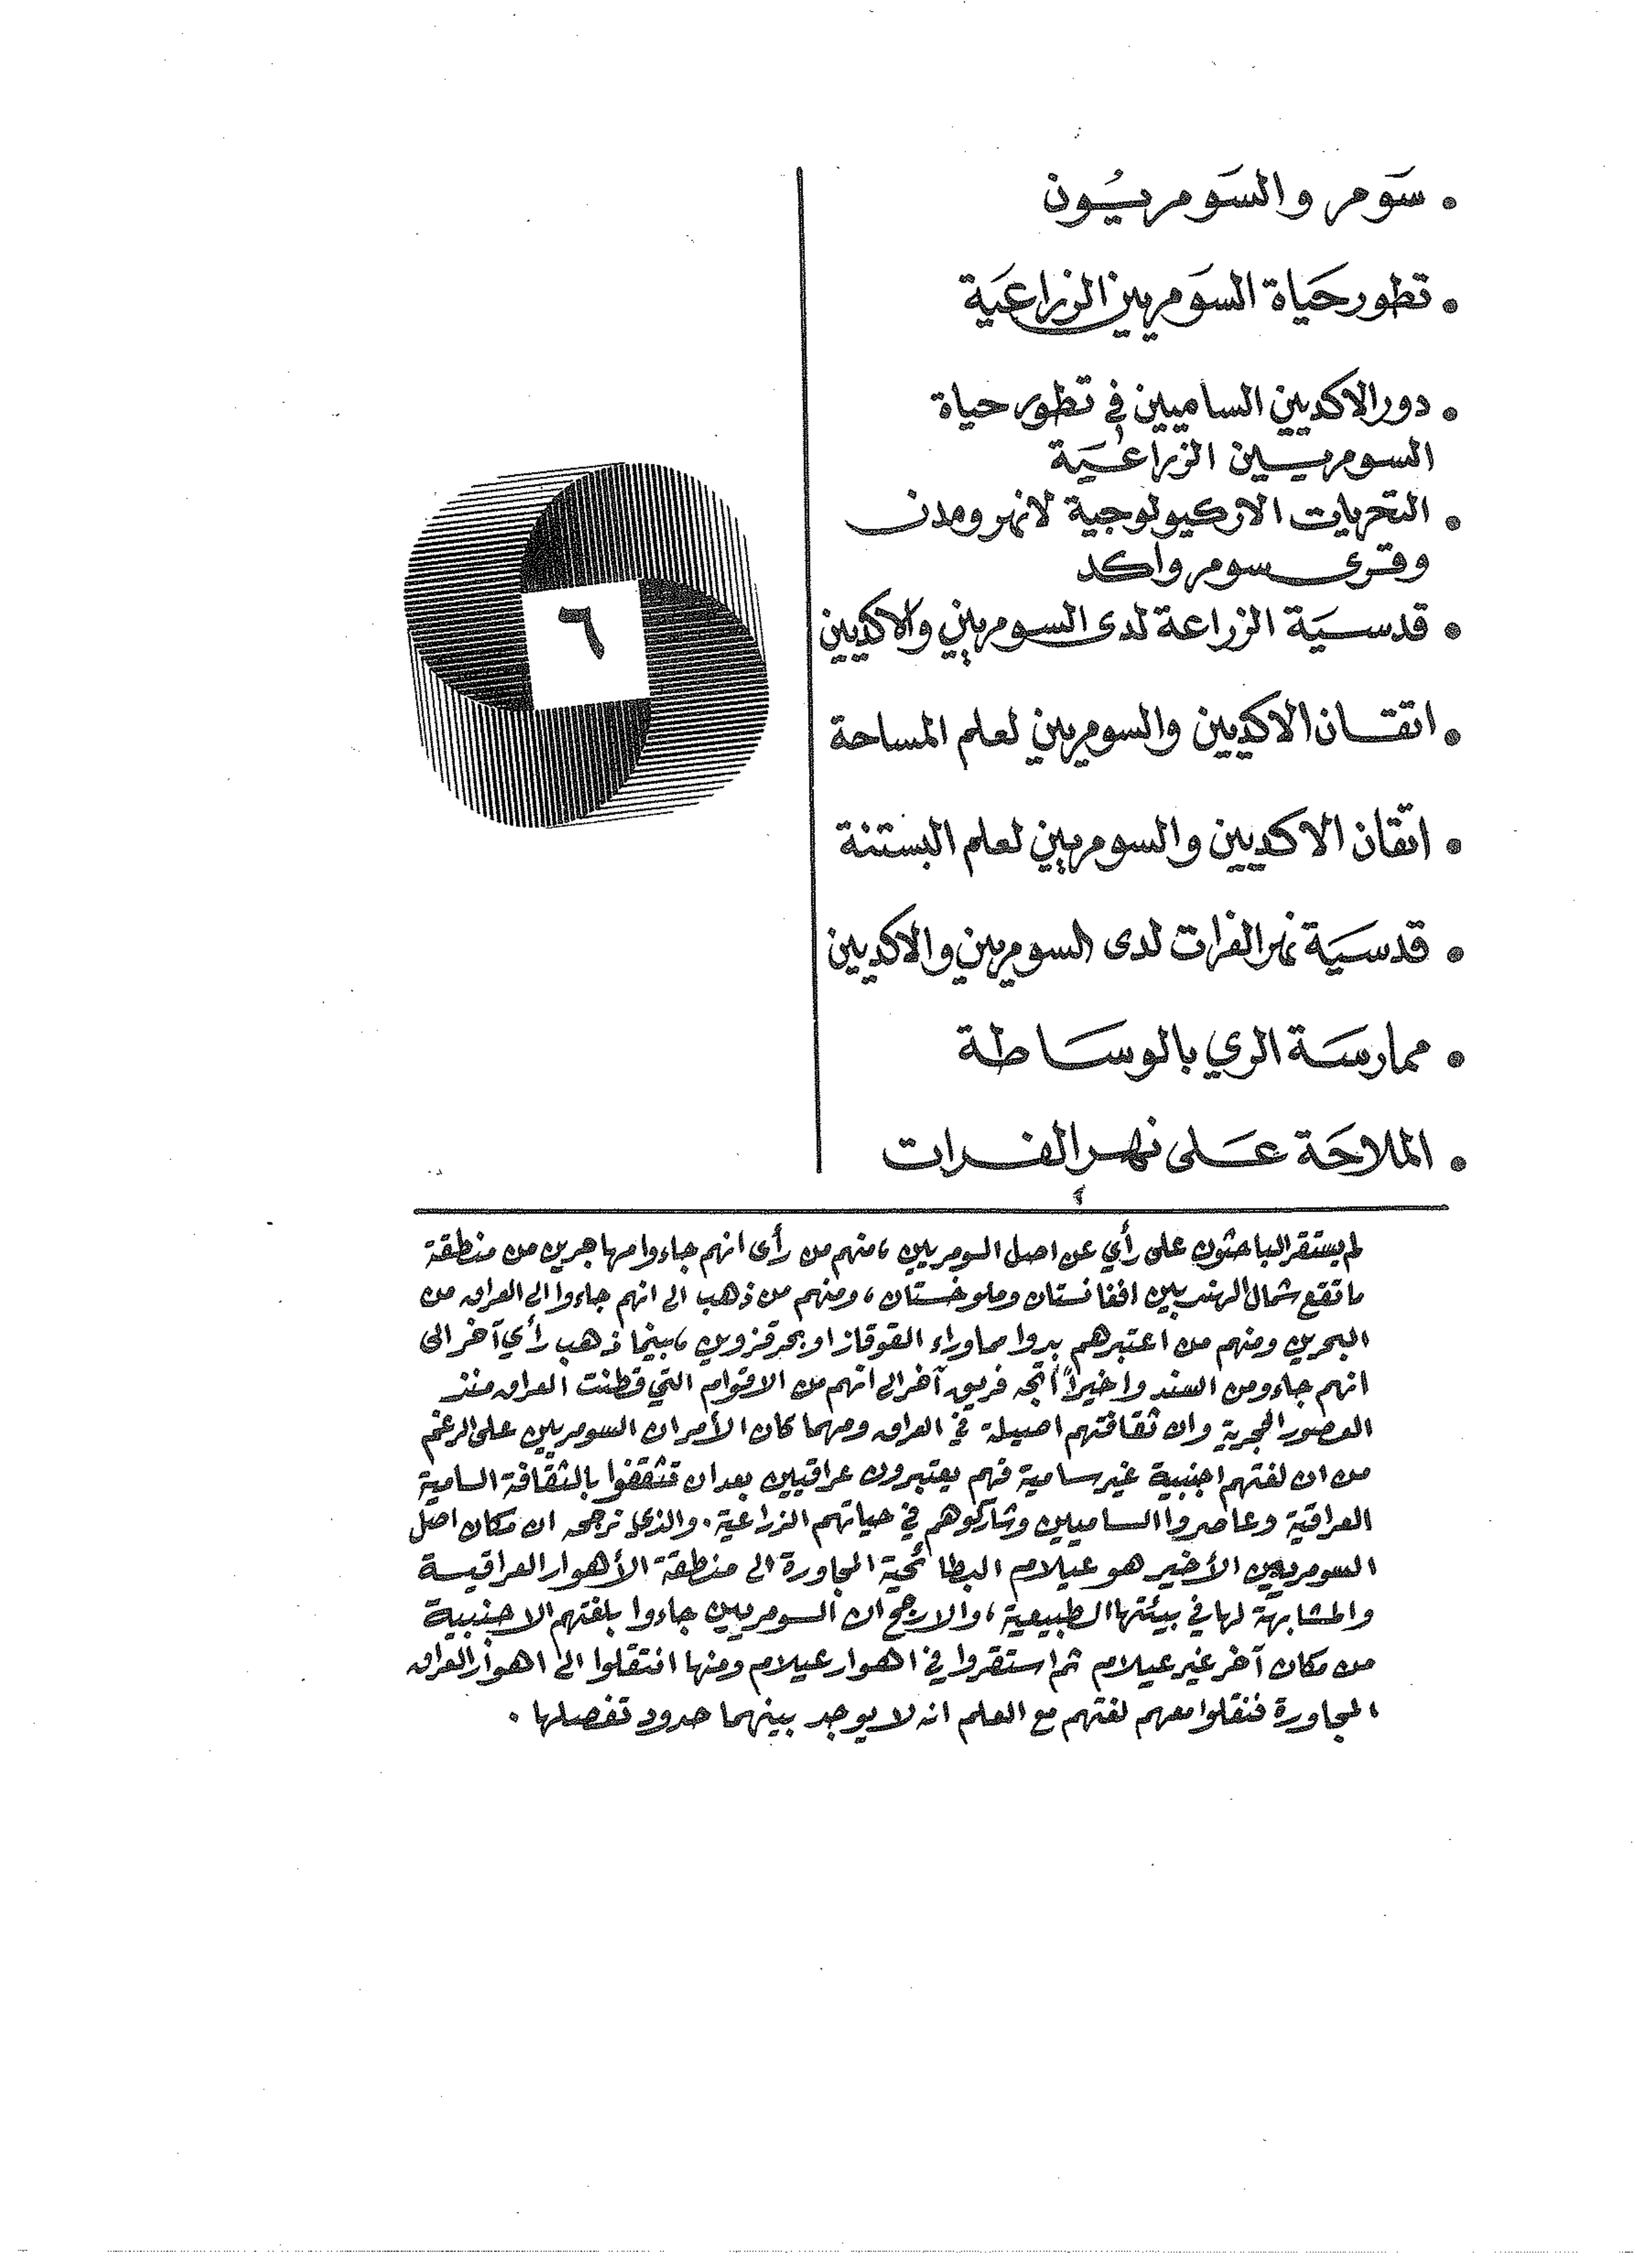 • سَومر والسَومريُون
• تطور حَياة السَومريين الزراعَية
• دور الاكديين الساميين في تطور حياة
السومريين الزراعَية
• التحريات الاركيولوجية لانهر ومدن
وقرى سومر واكد
• قدسيَة الزراعة لدى السومريين والاكديين
• اتقان الاكديين والسومريين لعلم المساحة
• اتقان الاكديين والسومريين لعلم البستنة
• قدسيَة نهر الفرات لدى السومريين والاكديين
• ممارسَة الري بالوسَاطة
• الملاحَة عَلى نهر الفرات
٦
لم يستقر الباحثون على رأي عن اصل السومريين ، منهم من رأى انهم جاءوا مهاجرين من منطقة
ما تقع شمال الهند بين افغانستان وملوخستان ، ومنهم من ذهب الى انهم جاءوا الى العراق من
البحرين ومنهم من اعتبرهم بدوا مما وراء القوقاز او بحر قزوين ، بينما ذهب رأي آخر الى
انهم جاءو من السند واخيراً اتجه فريق آخر الى انهم من الاقوام التي قطنت العراق منذ
العصور الحجرية وان ثقافتهم اصيلة في العراق ومهما كان الأمر ان السومريين على الرغم
من ان لغتهم اجنبية غير سامية فهم يعتبرون عراقيين بعد ان تثقفوا بالثقافة السامية
العراقية وعاصروا الساميين وشاركوهم في حياتهم الزراعية . والذي نرجحه ان مكان اصل
السومريين الأخير هو عيلام البطائحية المجاورة الى منطقة الأهوار العراقية
والمشابهة لها في بيئتها الطبيعية ، والارجح ان السومريين جاءوا بلغتهم الاجنبية
من مكان آخر غير عيلام ثم استقروا في اهوار عيلام ومنها انتقلوا الى اهوار العراق
المجاورة فنقلوا معهم لغتهم مع العلم انه لا يوجد بينهما حدود تفصلها .